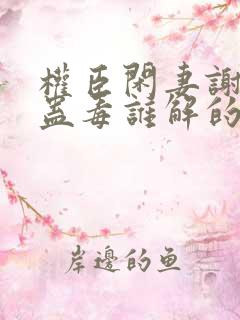 權臣閑妻謝
蓋毒誰解的
岸邊的鱼